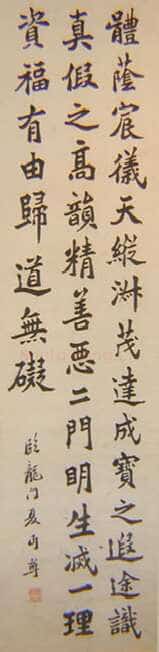 體蔭宸儀天縱淑茂達成寶之遐途識
真假之高韻精善惡二門明生滅一理
資福有由歸道無礙
臨龍門夏丏尊